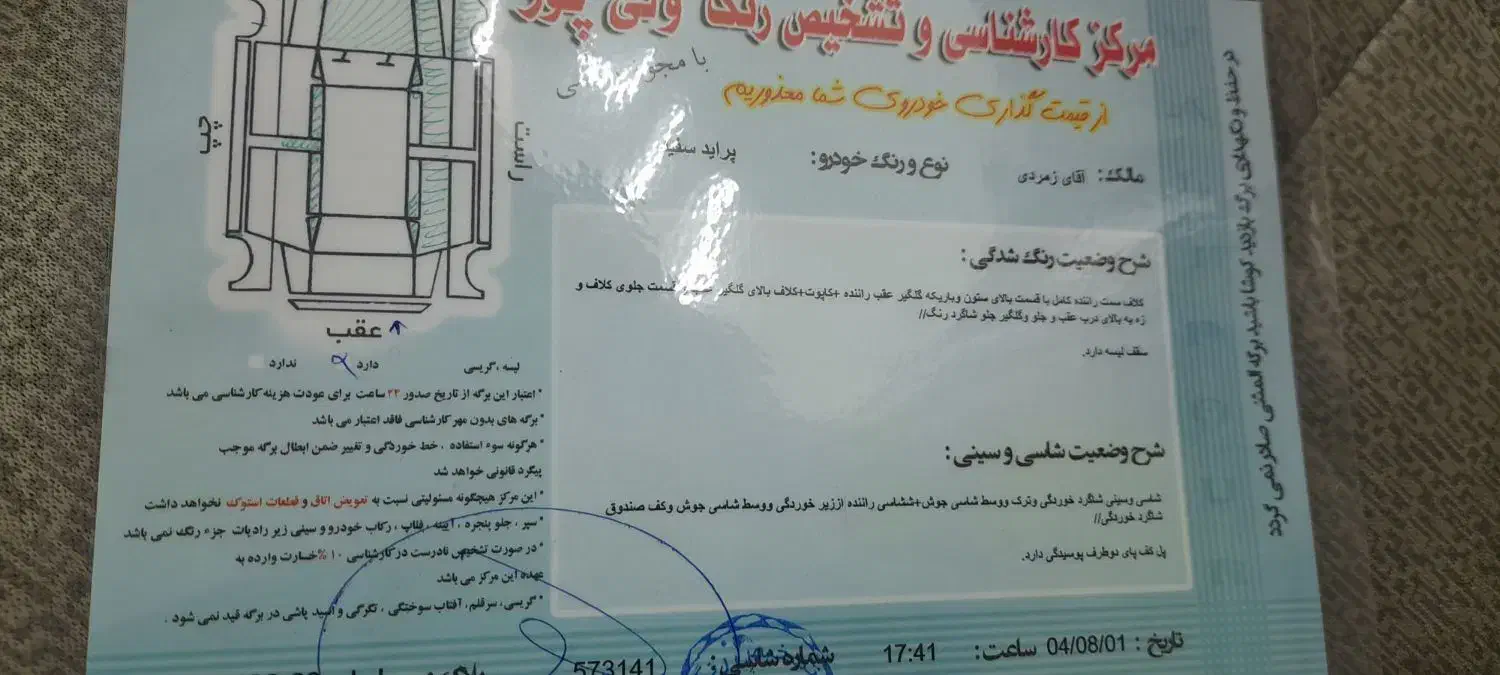 مرکز کارشناسی و تشخیص رنگ ولی پور
با مجوز
از قیمت گذاری خودروی شما معذوریم
مالک: آقای زمردی
نوع و رنگ خودرو: پراید سفید
شرح وضعیت رنگ شدگی:
کلاف سمت راننده کامل با قسمت بالای ستون وباریکه گلگیر عقب راننده +کاپوت+کلاف بالای گلگیر قسمت جلوی کلاف و
زه به بالای درب عقب و جلو وگلگیر جلو شاگرد رنگ//
سقف لیسه دارد.
شرح وضعیت شاسی و سینی:
شاسی وسینی شاگرد خوردگی وترک ووسط شاسی جوش+ششاسی راننده اززیر خوردگی ووسط شاسی جوش وکف صندوق
شاگرد خوردگی//
پل کف پای دوطرف پوسیدگی دارد.
تاریخ: 04/08/01 ساعت: 17:41 شماره شاسی: 573141
چپ
راست
عقب
لیسه ،گریسی دارد ندارد
* اعتبار این برگه از تاریخ صدور ۲۴ ساعت برای عودت هزینه کارشناسی می باشد
* برگه های بدون مهر کارشناسی فاقد اعتبار می باشد
* هرگونه سوء استفاده ، خط خوردگی و تغییر ضمن ابطال برگه موجب
پیگرد قانونی خواهد شد
* این مرکز هیچگونه مسئولیتی نسبت به تعویض اتاق و قطعات استوک نخواهد داشت
* سپر ، جلو پنجره ، آیینه ، قالپاق ، رکاب خودرو و سینی زیر رادیات جزء رنگ نمی باشد
* در صورت تشخیص نادرست در کارشناسی ۱۰% خسارت وارده به
عهده این مرکز می باشد
* گریسی، سرقلم، آفتاب سوختگی ، تگرگی و اسید پاشی در برگه قید نمی شود .
در حفظ و نگهداری برگه بازدید کوشا باشید برگه المثنی صادر نمی گردد